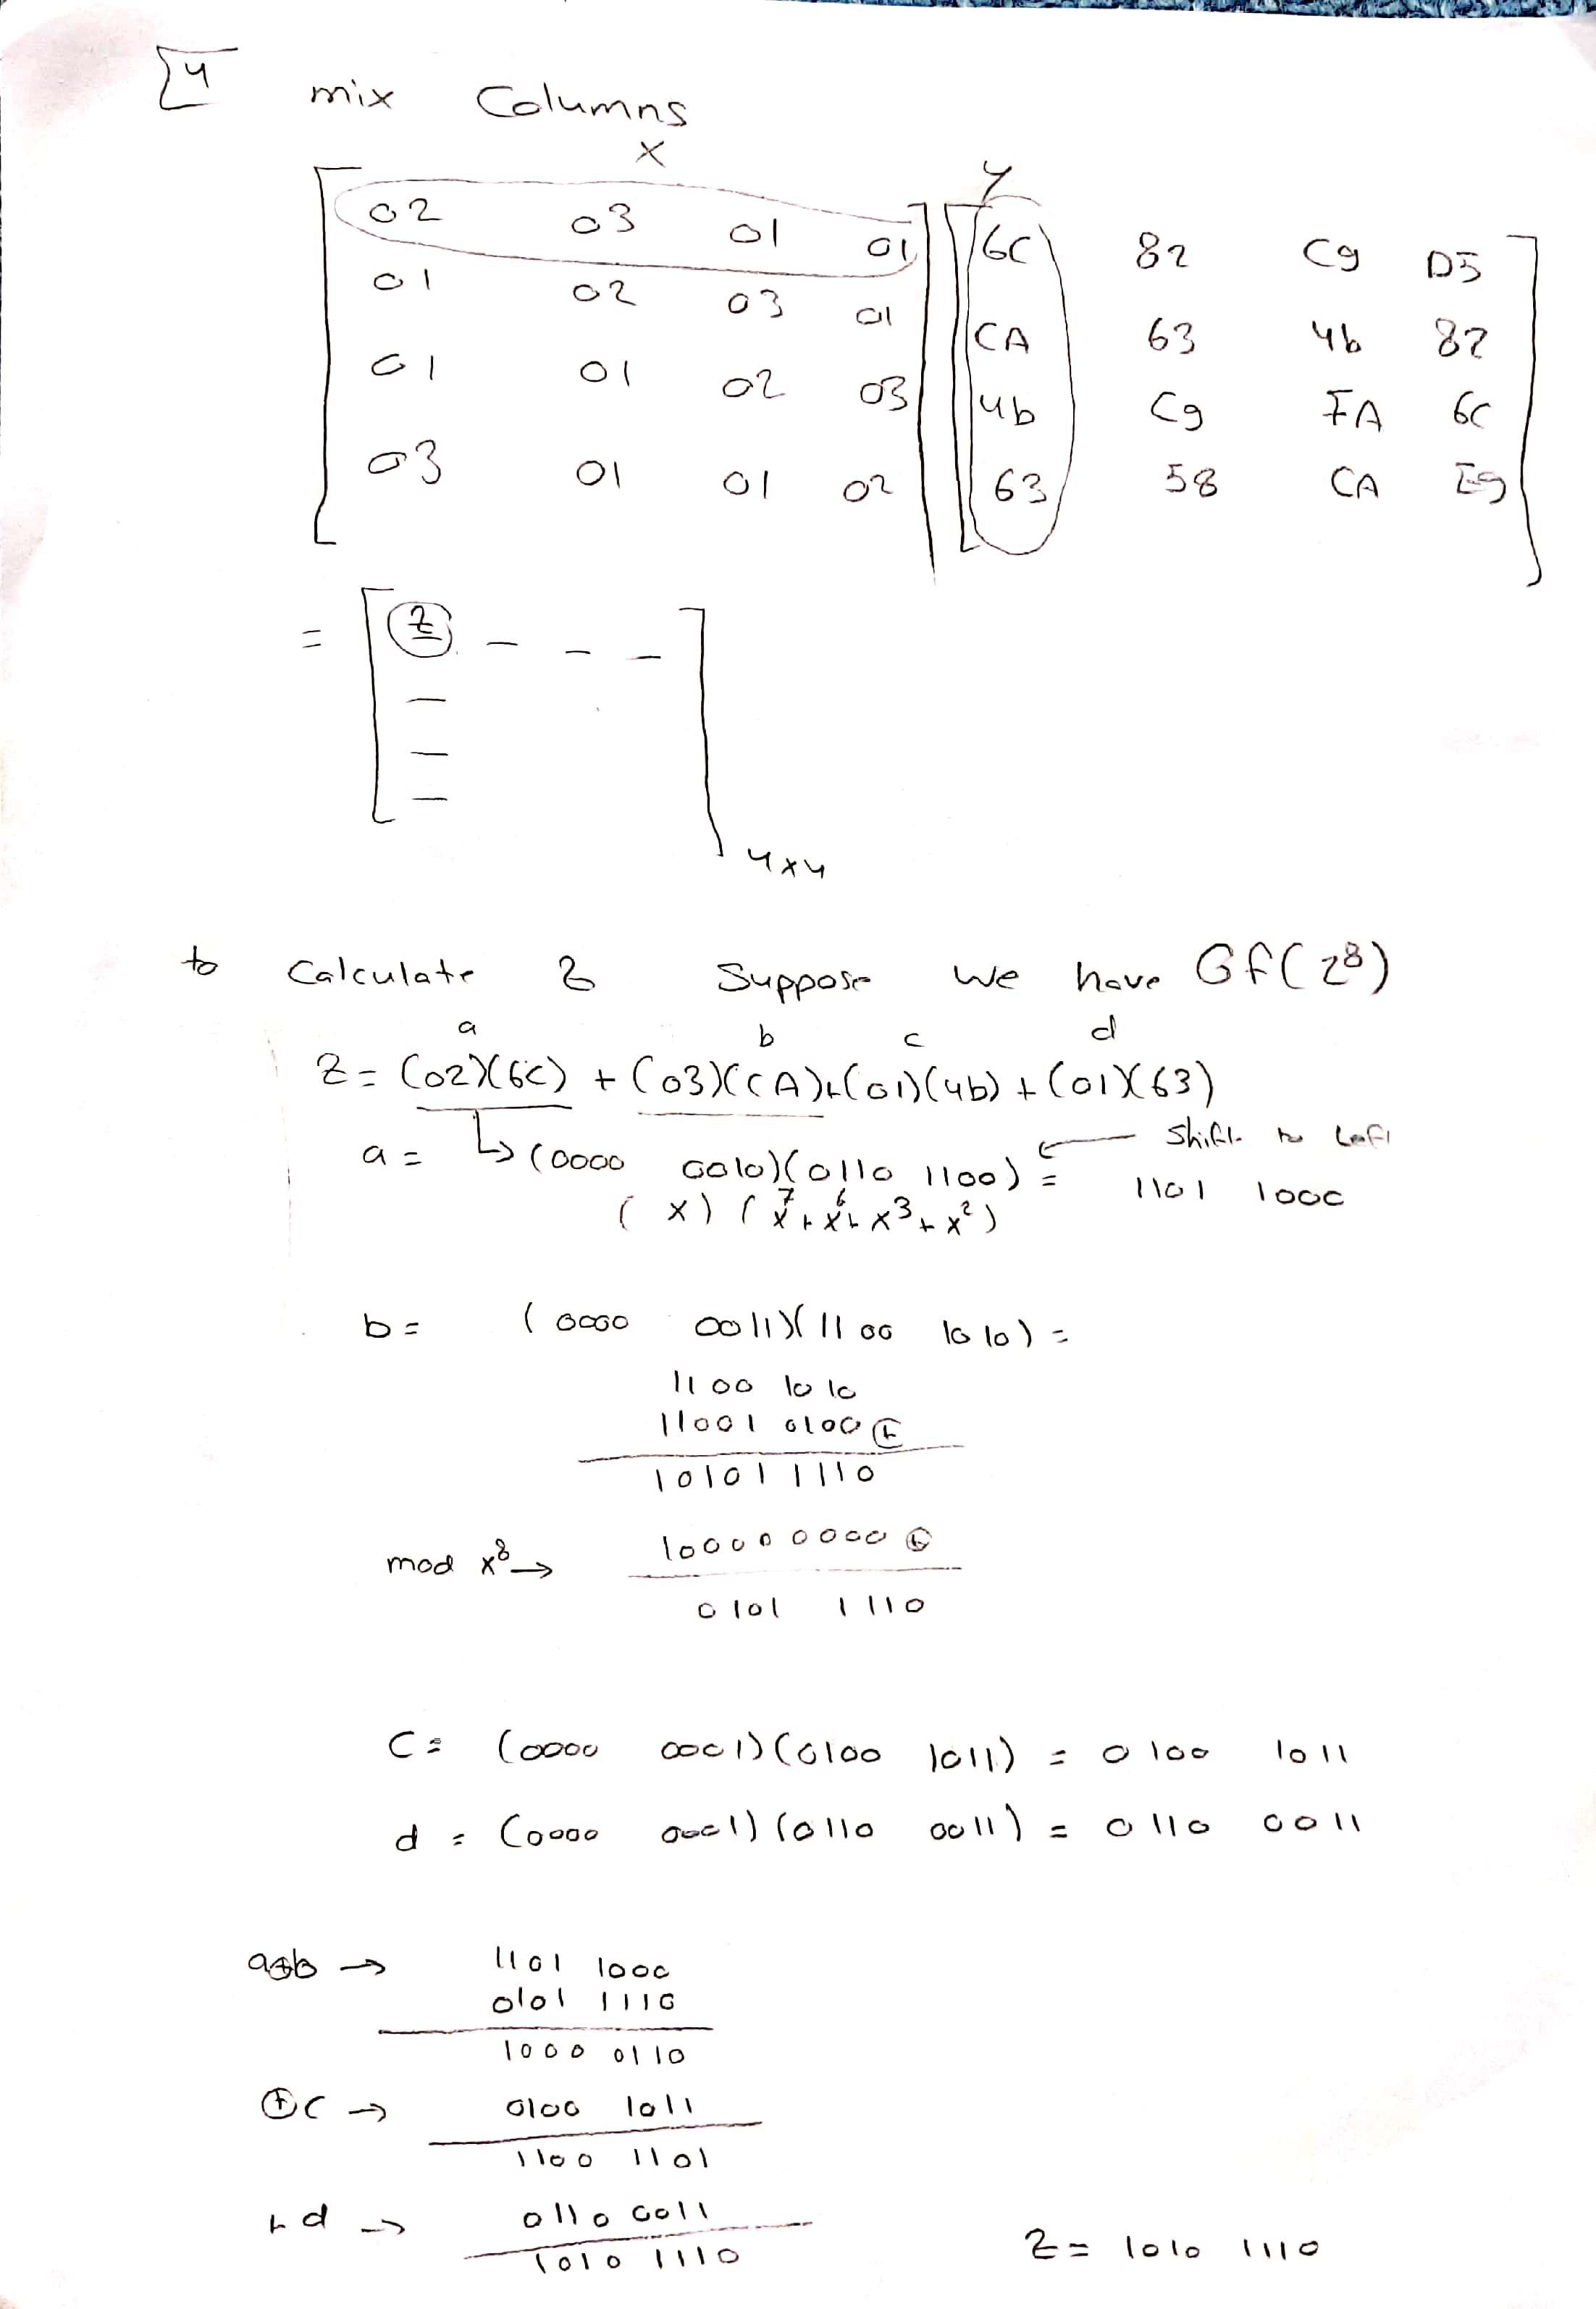 4 mix Columns
X
Y
02 03 01 01 6C 82 C9 D5
01 02 03 01 CA 63 4b 82
01 01 02 03 4b C9 FA 6C
03 01 01 02 63 58 CA E9
= Z - - -
4x4
to Calculate Z Suppose we have GF(2⁸)
a b c d
Z = (02)(6C) + (03)(CA)+(01)(4b) + (01)(63)
a = ↳ (0000 0010)(0110 1100) = ← Shift to Left
1101 1000
(x) (x⁷ + x⁶ + x³ + x²)
b = (0000 0011)(1100 1010) =
1100 1010
11001 0100 ⊕
101011110
mod x⁸ → 100000000 ⊕
0101 1110
C = (0000 0001)(0100 1011) = 0100 1011
d = (0000 0001)(0110 0011) = 0110 0011
a⊕b → 1101 1000
0101 1110
1000 0110
⊕C → 0100 1011
1100 1101
+ d → 0110 0011
1010 1110
Z = 1010 1110